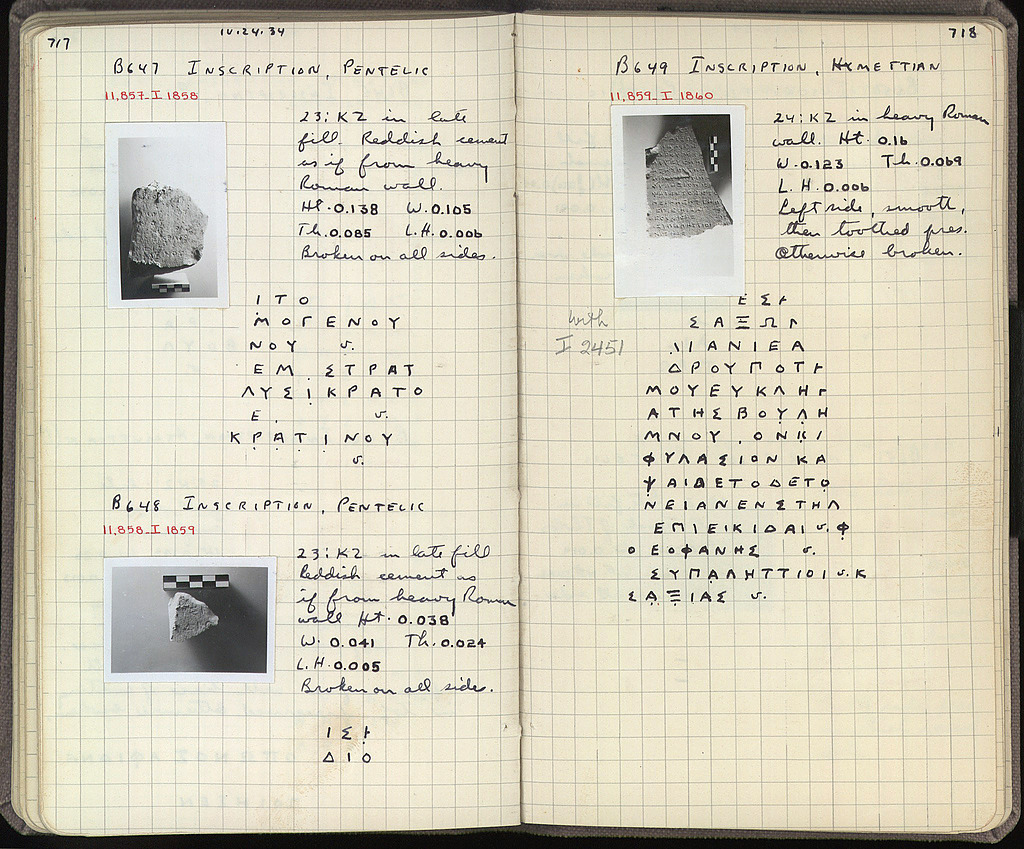 717
IV.24.34
B647 INSCRIPTION, PENTELIC
11,857-I 1858
23:KZ in late
fill. Reddish cement
as if from heavy
Roman wall.
Ht. 0.138 W. 0.105
Th. 0.085 L.H. 0.006
Broken on all sides.
Ι Τ Ο
Μ Ο Γ Ε Ν Ο Υ
Ν Ο Υ v.
Ε Μ . Σ Τ Ρ Α Τ
Λ Υ Σ Ι Κ Ρ Α Τ Ο
Ε . v.
Κ Ρ Α Τ Ι Ν Ο Υ
v.
B648 INSCRIPTION, PENTELIC
11,858-I 1859
23:KZ in late fill
Reddish cement as
if from heavy Roman
wall Ht. 0.038
W. 0.041 Th. 0.024
L.H. 0.005
Broken on all sides.
Ι Σ Ͱ
Δ Ι Ο
718
B649 INSCRIPTION, HYMETTIAN
11,859-I 1860
24:KZ in heavy Roman
wall. Ht. 0.16
W. 0.123 Th. 0.069
L.H. 0.006
Left side, smooth,
then toothed pres.
Otherwise broken.
with
I 2451
Ε Σ Ͱ
Σ Α Ξ Ω Λ
Λ Ι Α Ν Ι Ε Α
Δ Ρ Ο Υ Π Ο Τ Ͱ
Μ Ο Υ Ε Υ Κ Λ Η Γ
Α Τ Η Σ Β Ο Υ Λ Η
Μ Ν Ο Υ . Ο Ν Κ Ι
Φ Υ Λ Α Σ Ι Ο Ν Κ Α
Ψ Α Ι Δ Ε Τ Ο Δ Ε Τ Ο
Ν Ε Ι Α Ν Ε Ν Σ Τ Η Λ
Ε Π Ι Ε Ι Κ Ι Δ Α Ι v. Φ
Ο Ε Ο Φ Α Ν Η Σ v.
Σ Υ Π Α Λ Η Τ Τ Ι Ο Ι v. Κ
Σ Α Ξ Ι Α Σ v.